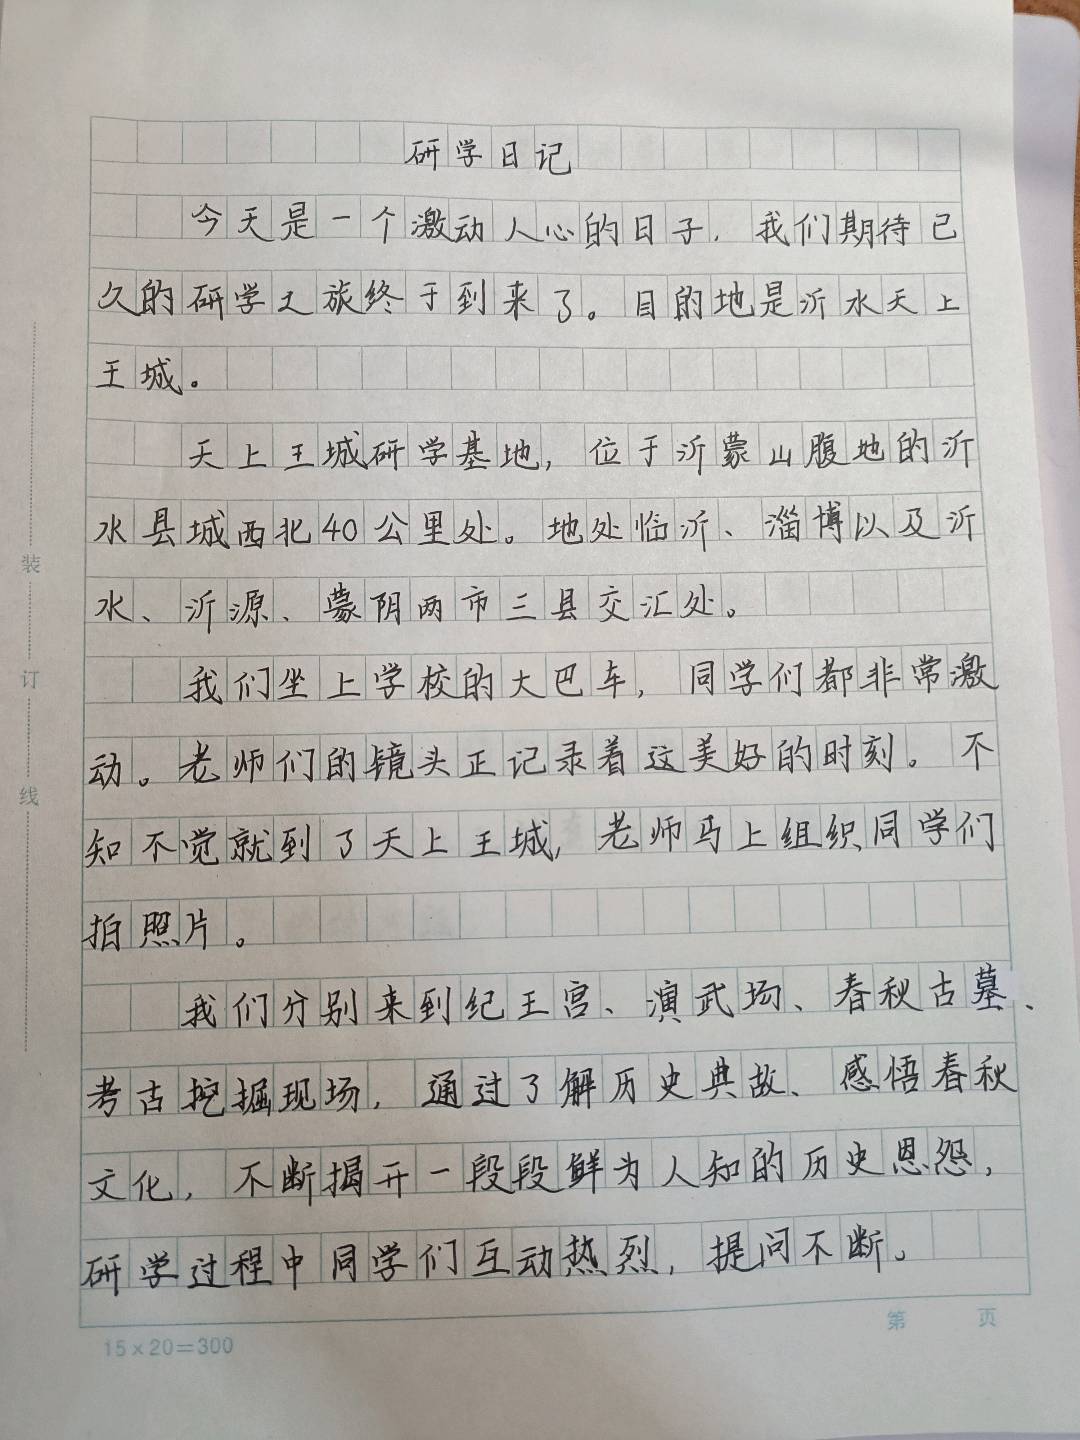 研学日记
今天是一个激动人心的日子，我们期待已
久的研学之旅终于到来了。目的地是沂水天上
王城。
天上王城研学基地，位于沂蒙山腹地的沂
水县城西北40公里处。地处临沂、淄博以及沂
水、沂源、蒙阴两市三县交汇处。
我们坐上学校的大巴车，同学们都非常激
动。老师们的镜头正记录着这美好的时刻。不
知不觉就到了天上王城，老师马上组织同学们
拍照片。
我们分别来到纪王宫、演武场、春秋古墓、
考古挖掘现场，通过了解历史典故、感悟春秋
文化，不断揭开一段段鲜为人知的历史恩怨，
研学过程中同学们互动热烈，提问不断。
装
订
线
15×20=300
第 页